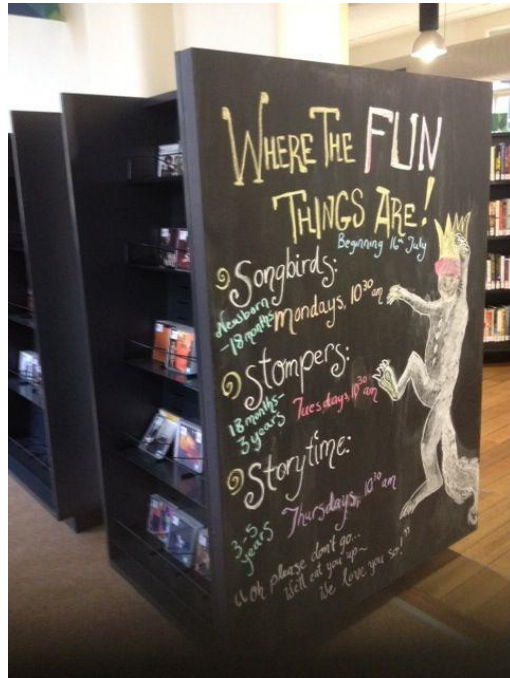 WHERE THE FUN
THINGS ARE!
Beginning 16th July
Songbirds:
Newborn
-18 months
mondays, 10 30 am
Stompers:
18 months-
3 years
Tuesdays, 10 30 am
Storytime:
3-5
years
Thursdays, 10 30 am
"Oh please don't go...
We'll eat you up~
We love you so!"